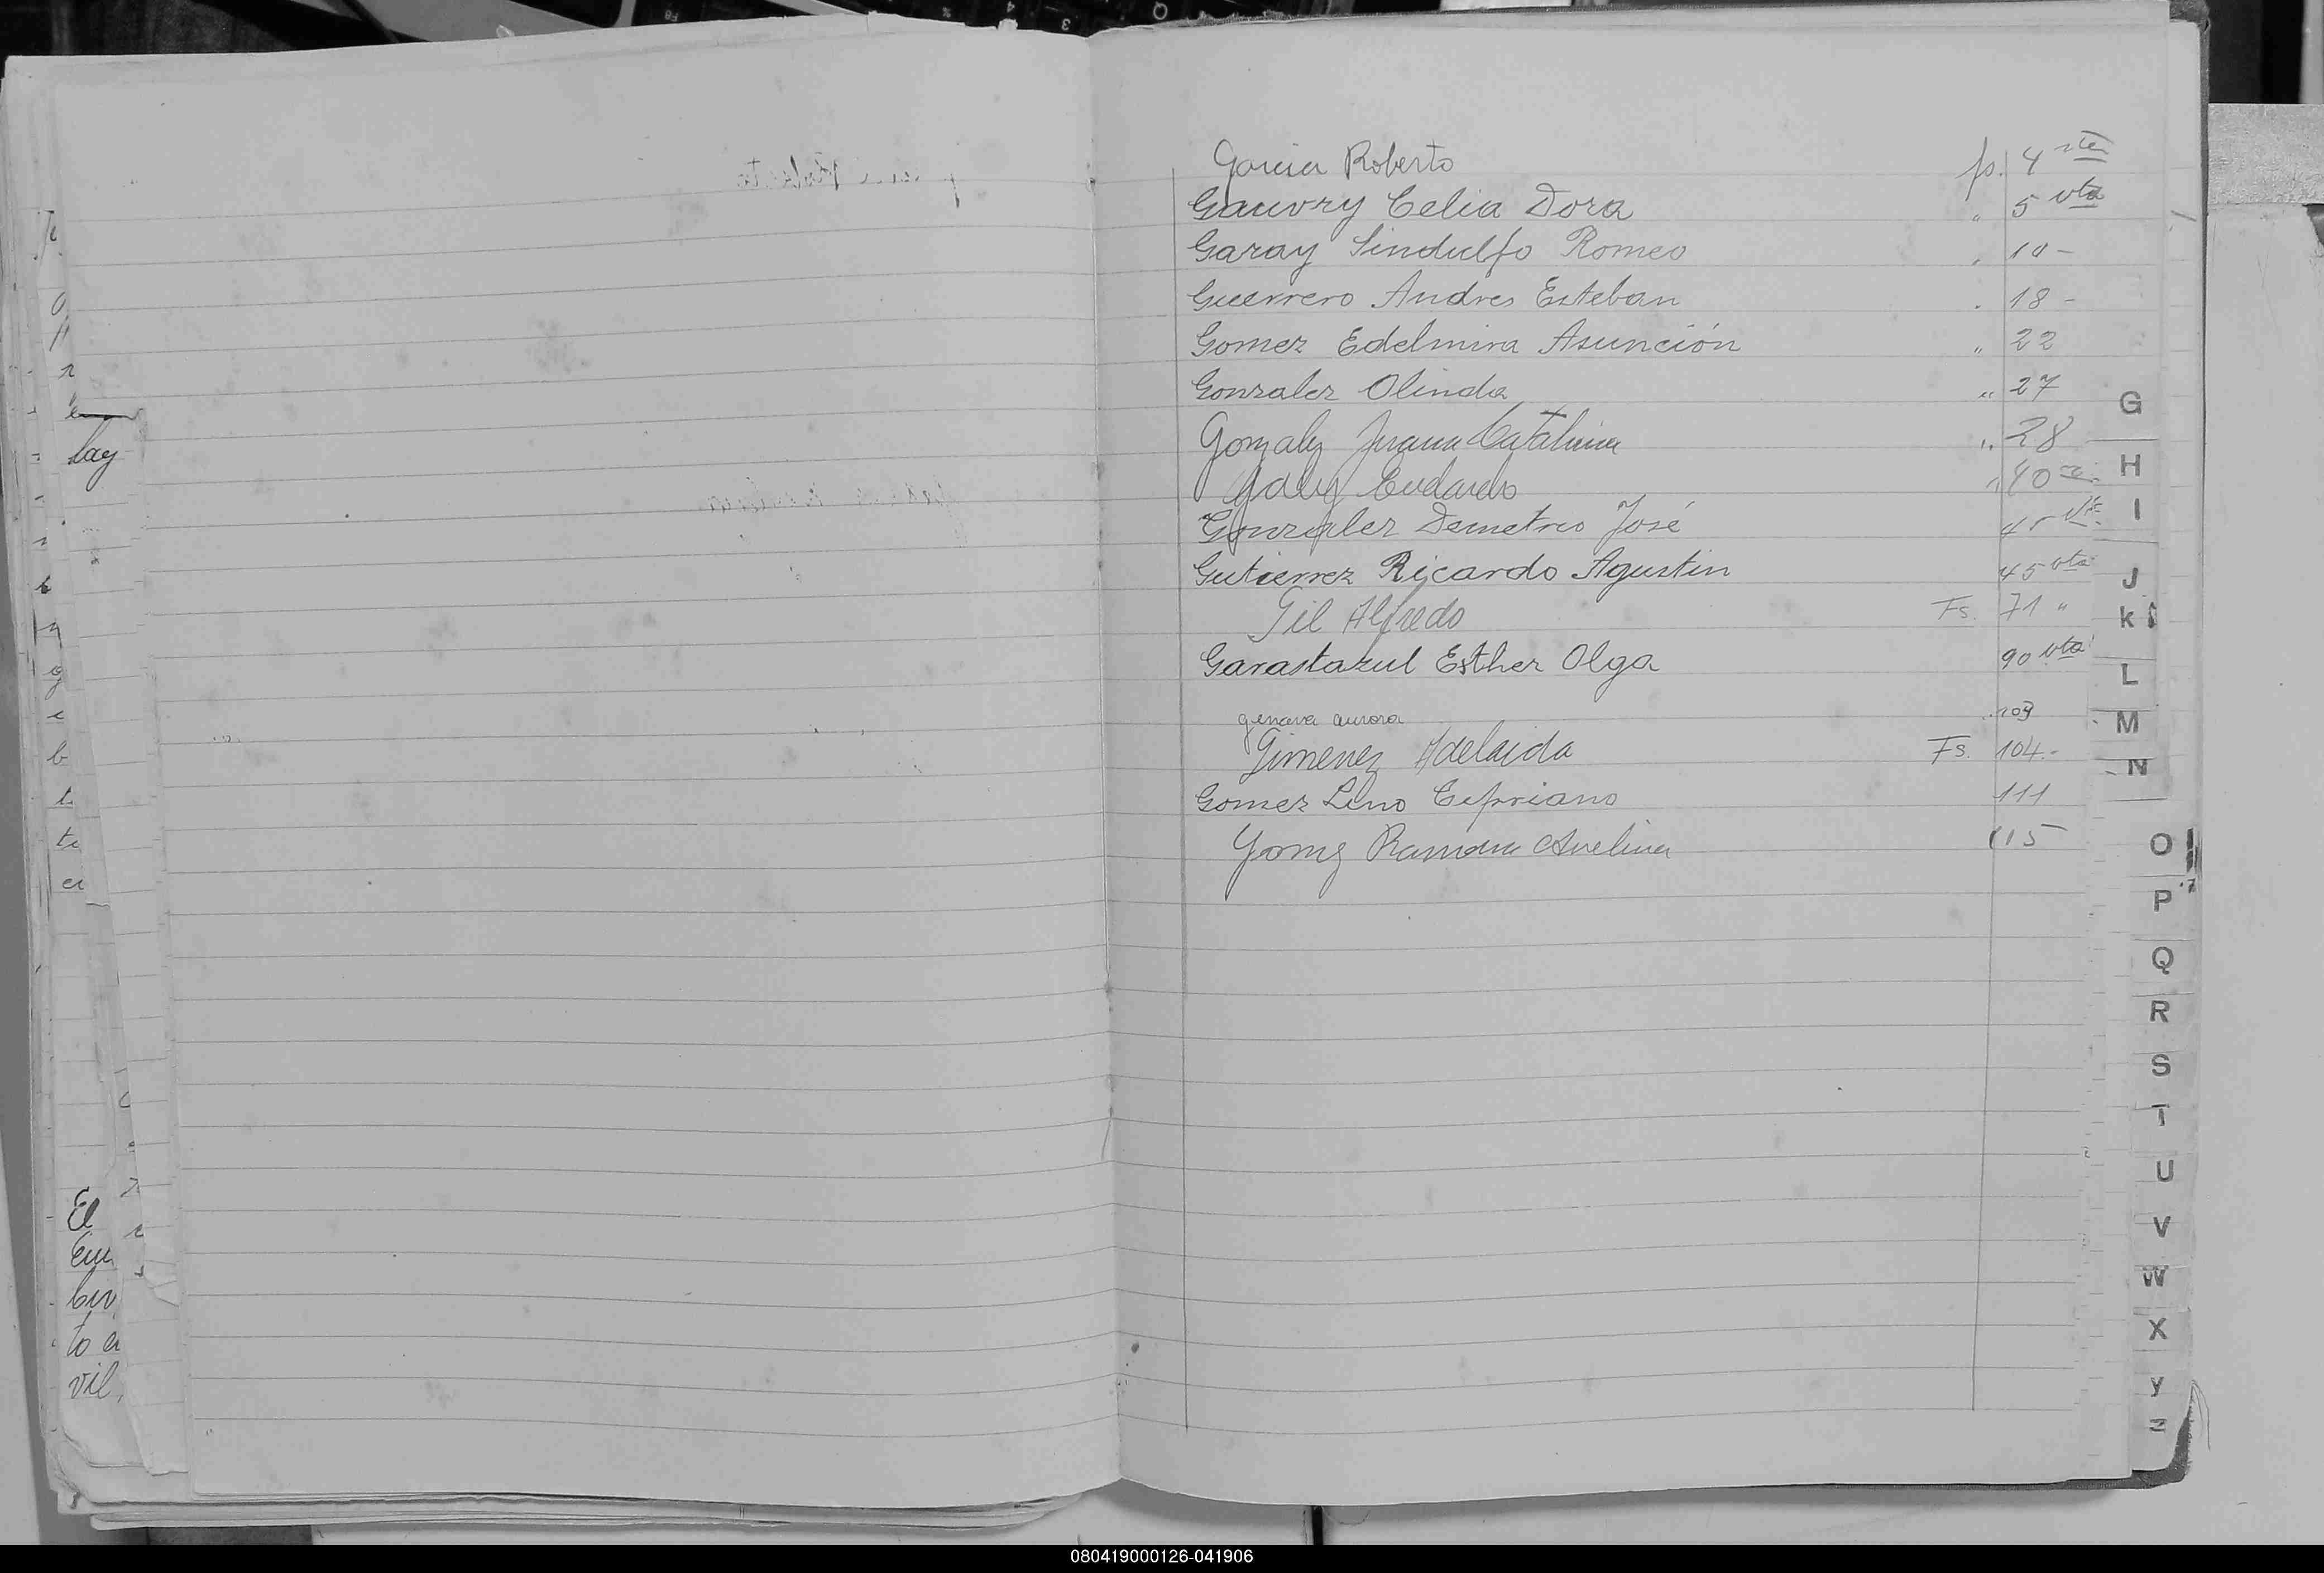 Garcia Roberto fs. 4 vta
Gauvry Celia Dora " 5 vta
Garay Sindulfo Romeo " 10 -
Guerrero Andres Esteban " 18 -
Gomez Edelmira Asunción " 22
Gonzalez Olinda " 27
Gonzalez Juana Catalina " 28
Godoy " 40
Gonzalez Demetrio José vta
Gutierrez Ricardo Agustin 45 vta
Gil Alfredo Fs. 71 "
Garastazul Esther Olga 90 vta
aurora 103
Gimenez Adelaida Fs. 104.-
Gomez Lino Cipriano 111
Gomez Ramona Avelina 115
G
H
I
J
k
L
M
N
O
P
Q
R
S
T
U
V
W
X
y
Z
lay
El
to a
vil,
080419000126-041906